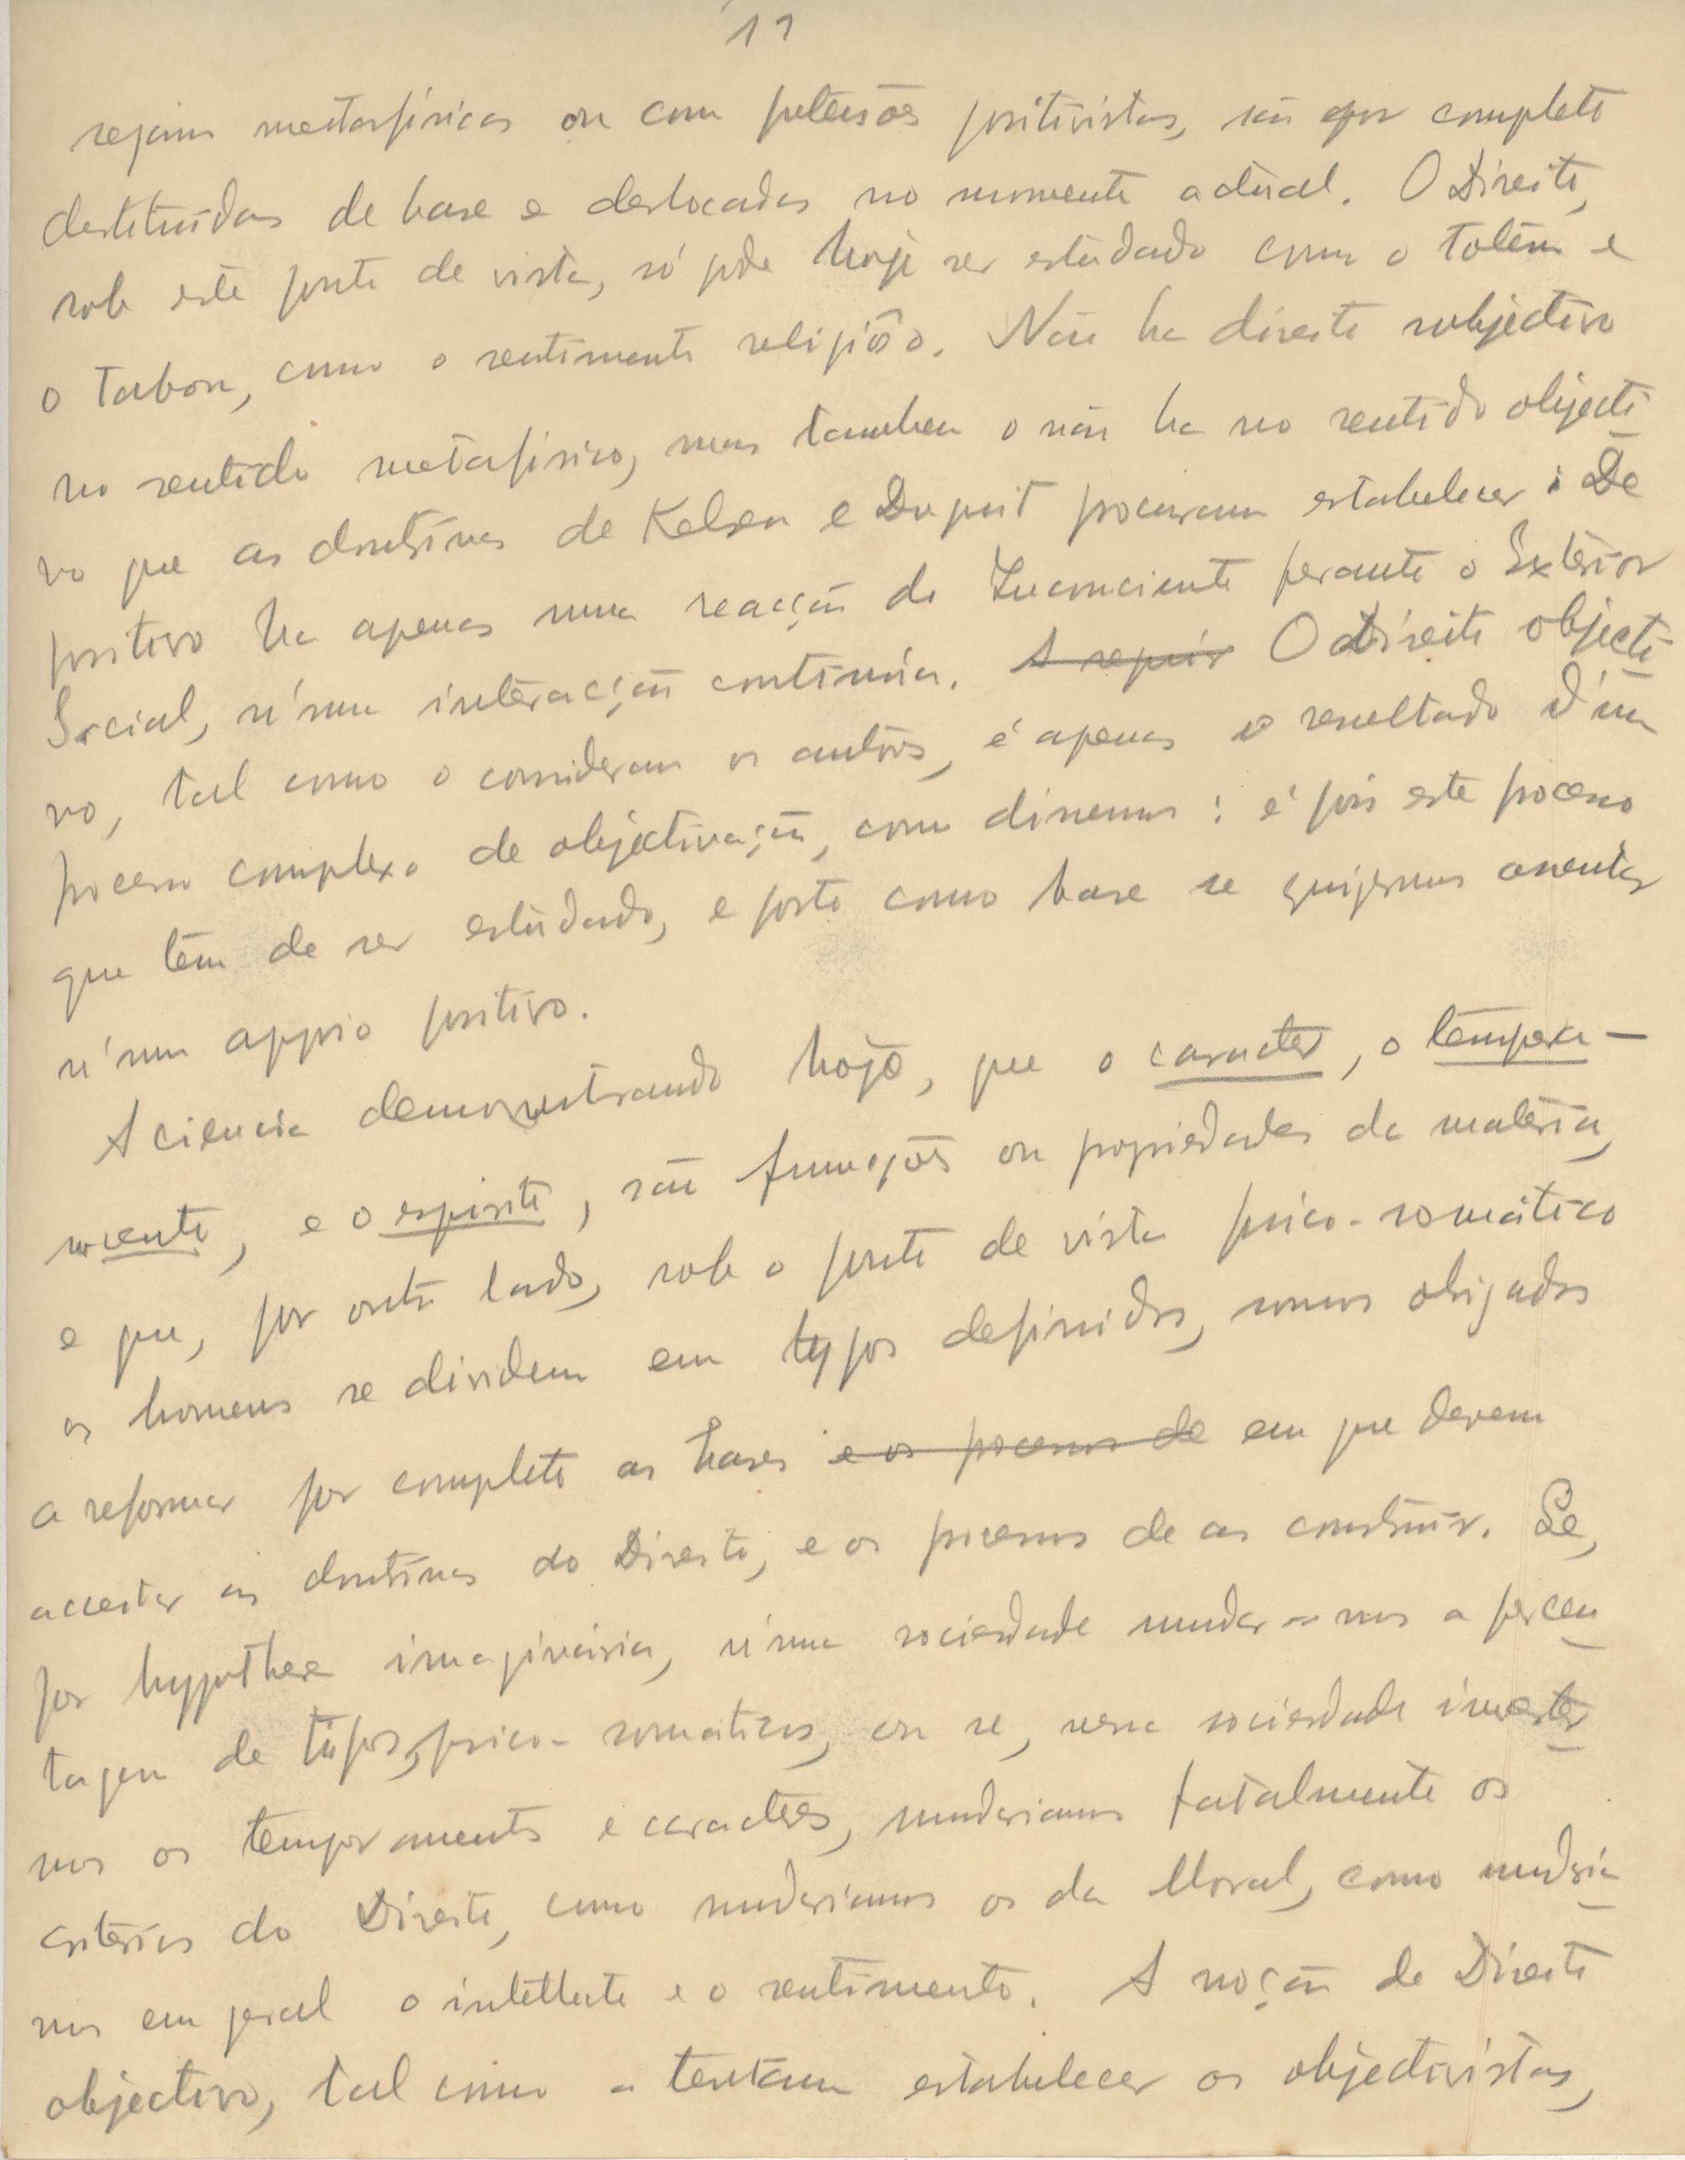 11
sejam metafisicas ou com pretensões positivistas, são por completo
destituidas de base e deslocadas no momento actual. O Direito,
sob este ponto de vista, só pode hoje ser estudado como o totem e
o tabou, como o sentimento religioso. Não ha direito subjectivo
no sentido metafisico, mas tambem o não ha no sentido objecti
vo que as doutrinas de Kelsen e Duguit procuram estabelecer: De
positivo ha apenas uma reacção do Inconciente perante o Exterior
Social, n'uma interacção continúa. A seguir O Direito objecti-
vo, tal como o consideram os autores, é apenas o resultado d'um
processo complexo de objectivação, como dissemos: é pois este processo
que tem de ser estudado, e posto como base se quizermos assentar
n'um appoio positivo.
A ciencia demonstrando hoje, que o caracter, o tempera-
mento, e o espirito, são funcções ou propriedades da materia,
e que, por outro lado, sob o ponto de vista psico-somático
os homens se dividem em typos definidos, somos obrigados
a reformar por completo as bases e os processos de em que devem
assentar as doutrinas do Direito, e os processos de as construir. Se,
por hypothese imaginária, n'uma sociedade mudar-mos a percen
tagem de tipos, psico-somaticos, ou se, nessa sociedade inverter
mos os temperamentos e caracteres, mudariamos fatalmente os
criterios do Direito, como mudariamos os da Moral, como mudaria
mos em geral o intellecto e o sentimento. A noção de Direito
objectivo, tal como a tentam estabelecer os objectivistas,